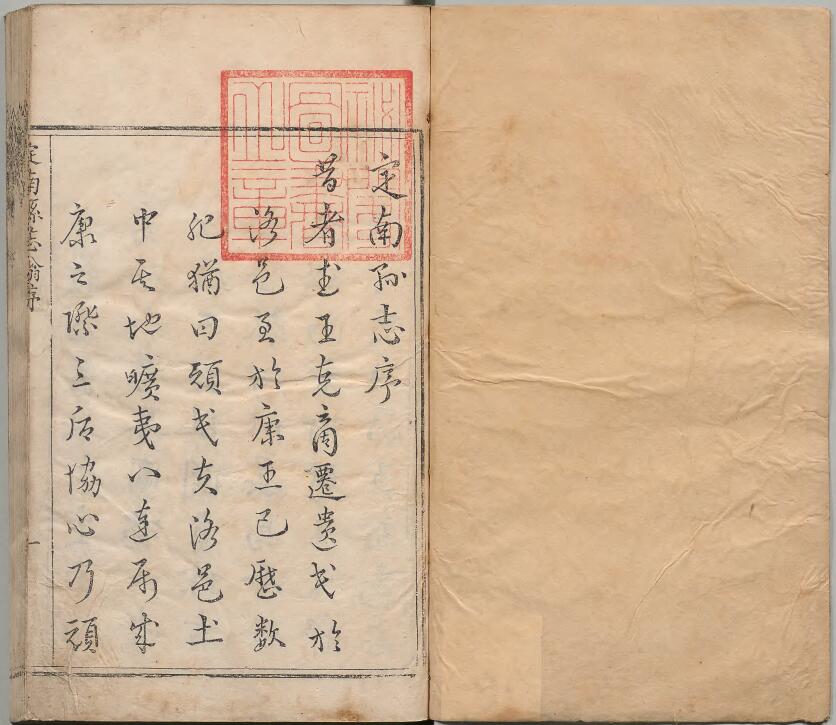 定南縣志序
昔者武王克商遷遺民於
洛邑至於康王已歷數
紀猶曰頑民夫洛邑土
中其地曠夷八達成
康之際三后協心乃頑
定南縣志翁序
一